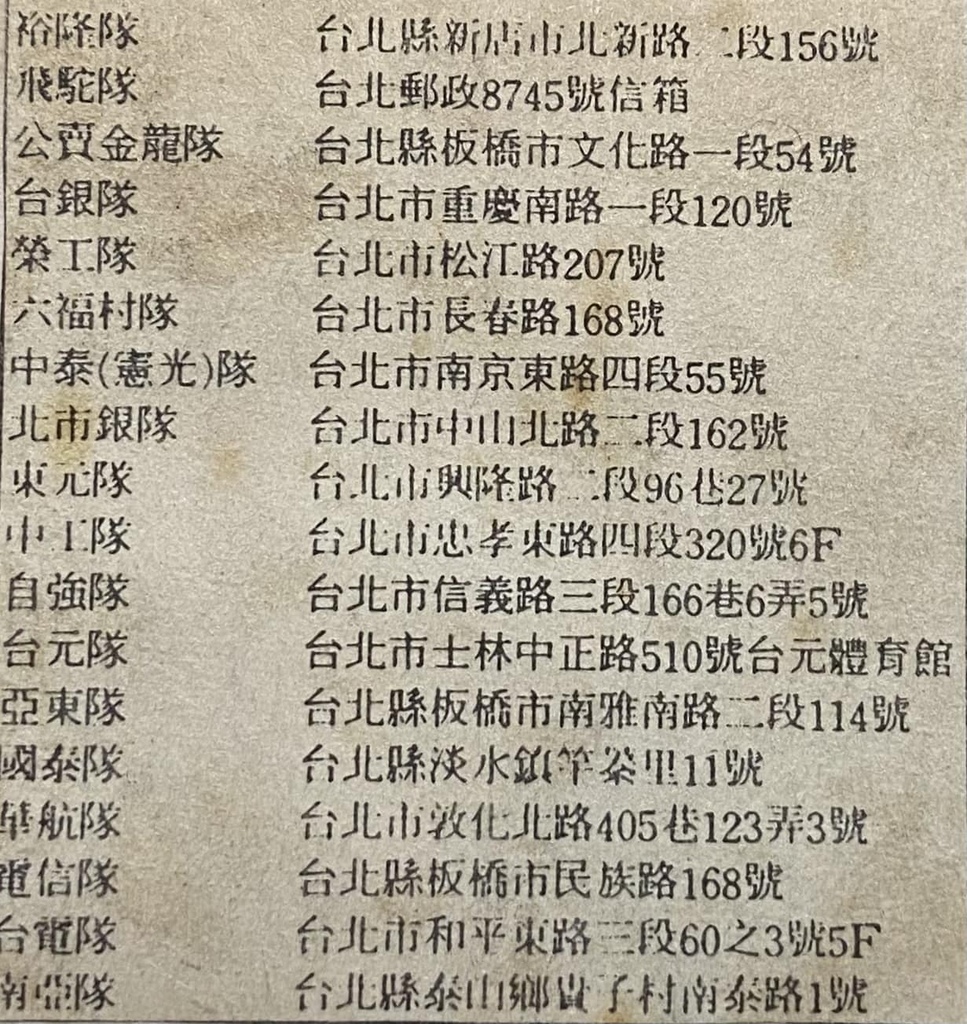 裕隆隊 台北縣新店市北新路二段156號
飛駝隊 台北郵政8745號信箱
公賣金龍隊 台北縣板橋市文化路一段54號
台銀隊 台北市重慶南路一段120號
榮工隊 台北市松江路207號
六福村隊 台北市長春路168號
中泰(憲光)隊 台北市南京東路四段55號
北市銀隊 台北市中山北路二段162號
東元隊 台北市興隆路二段96巷27號
中工隊 台北市忠孝東路四段320號6F
自強隊 台北市信義路三段166巷6弄5號
台元隊 台北市士林中正路510號台元體育館
亞東隊 台北縣板橋市南雅南路二段114號
國泰隊 台北縣淡水鎮竿蓁里11號
華航隊 台北市敦化北路405巷123弄3號
電信隊 台北縣板橋市民族路168號
台電隊 台北市和平東路三段60之3號5F
南亞隊 台北縣泰山鄉貴子村南泰路1號